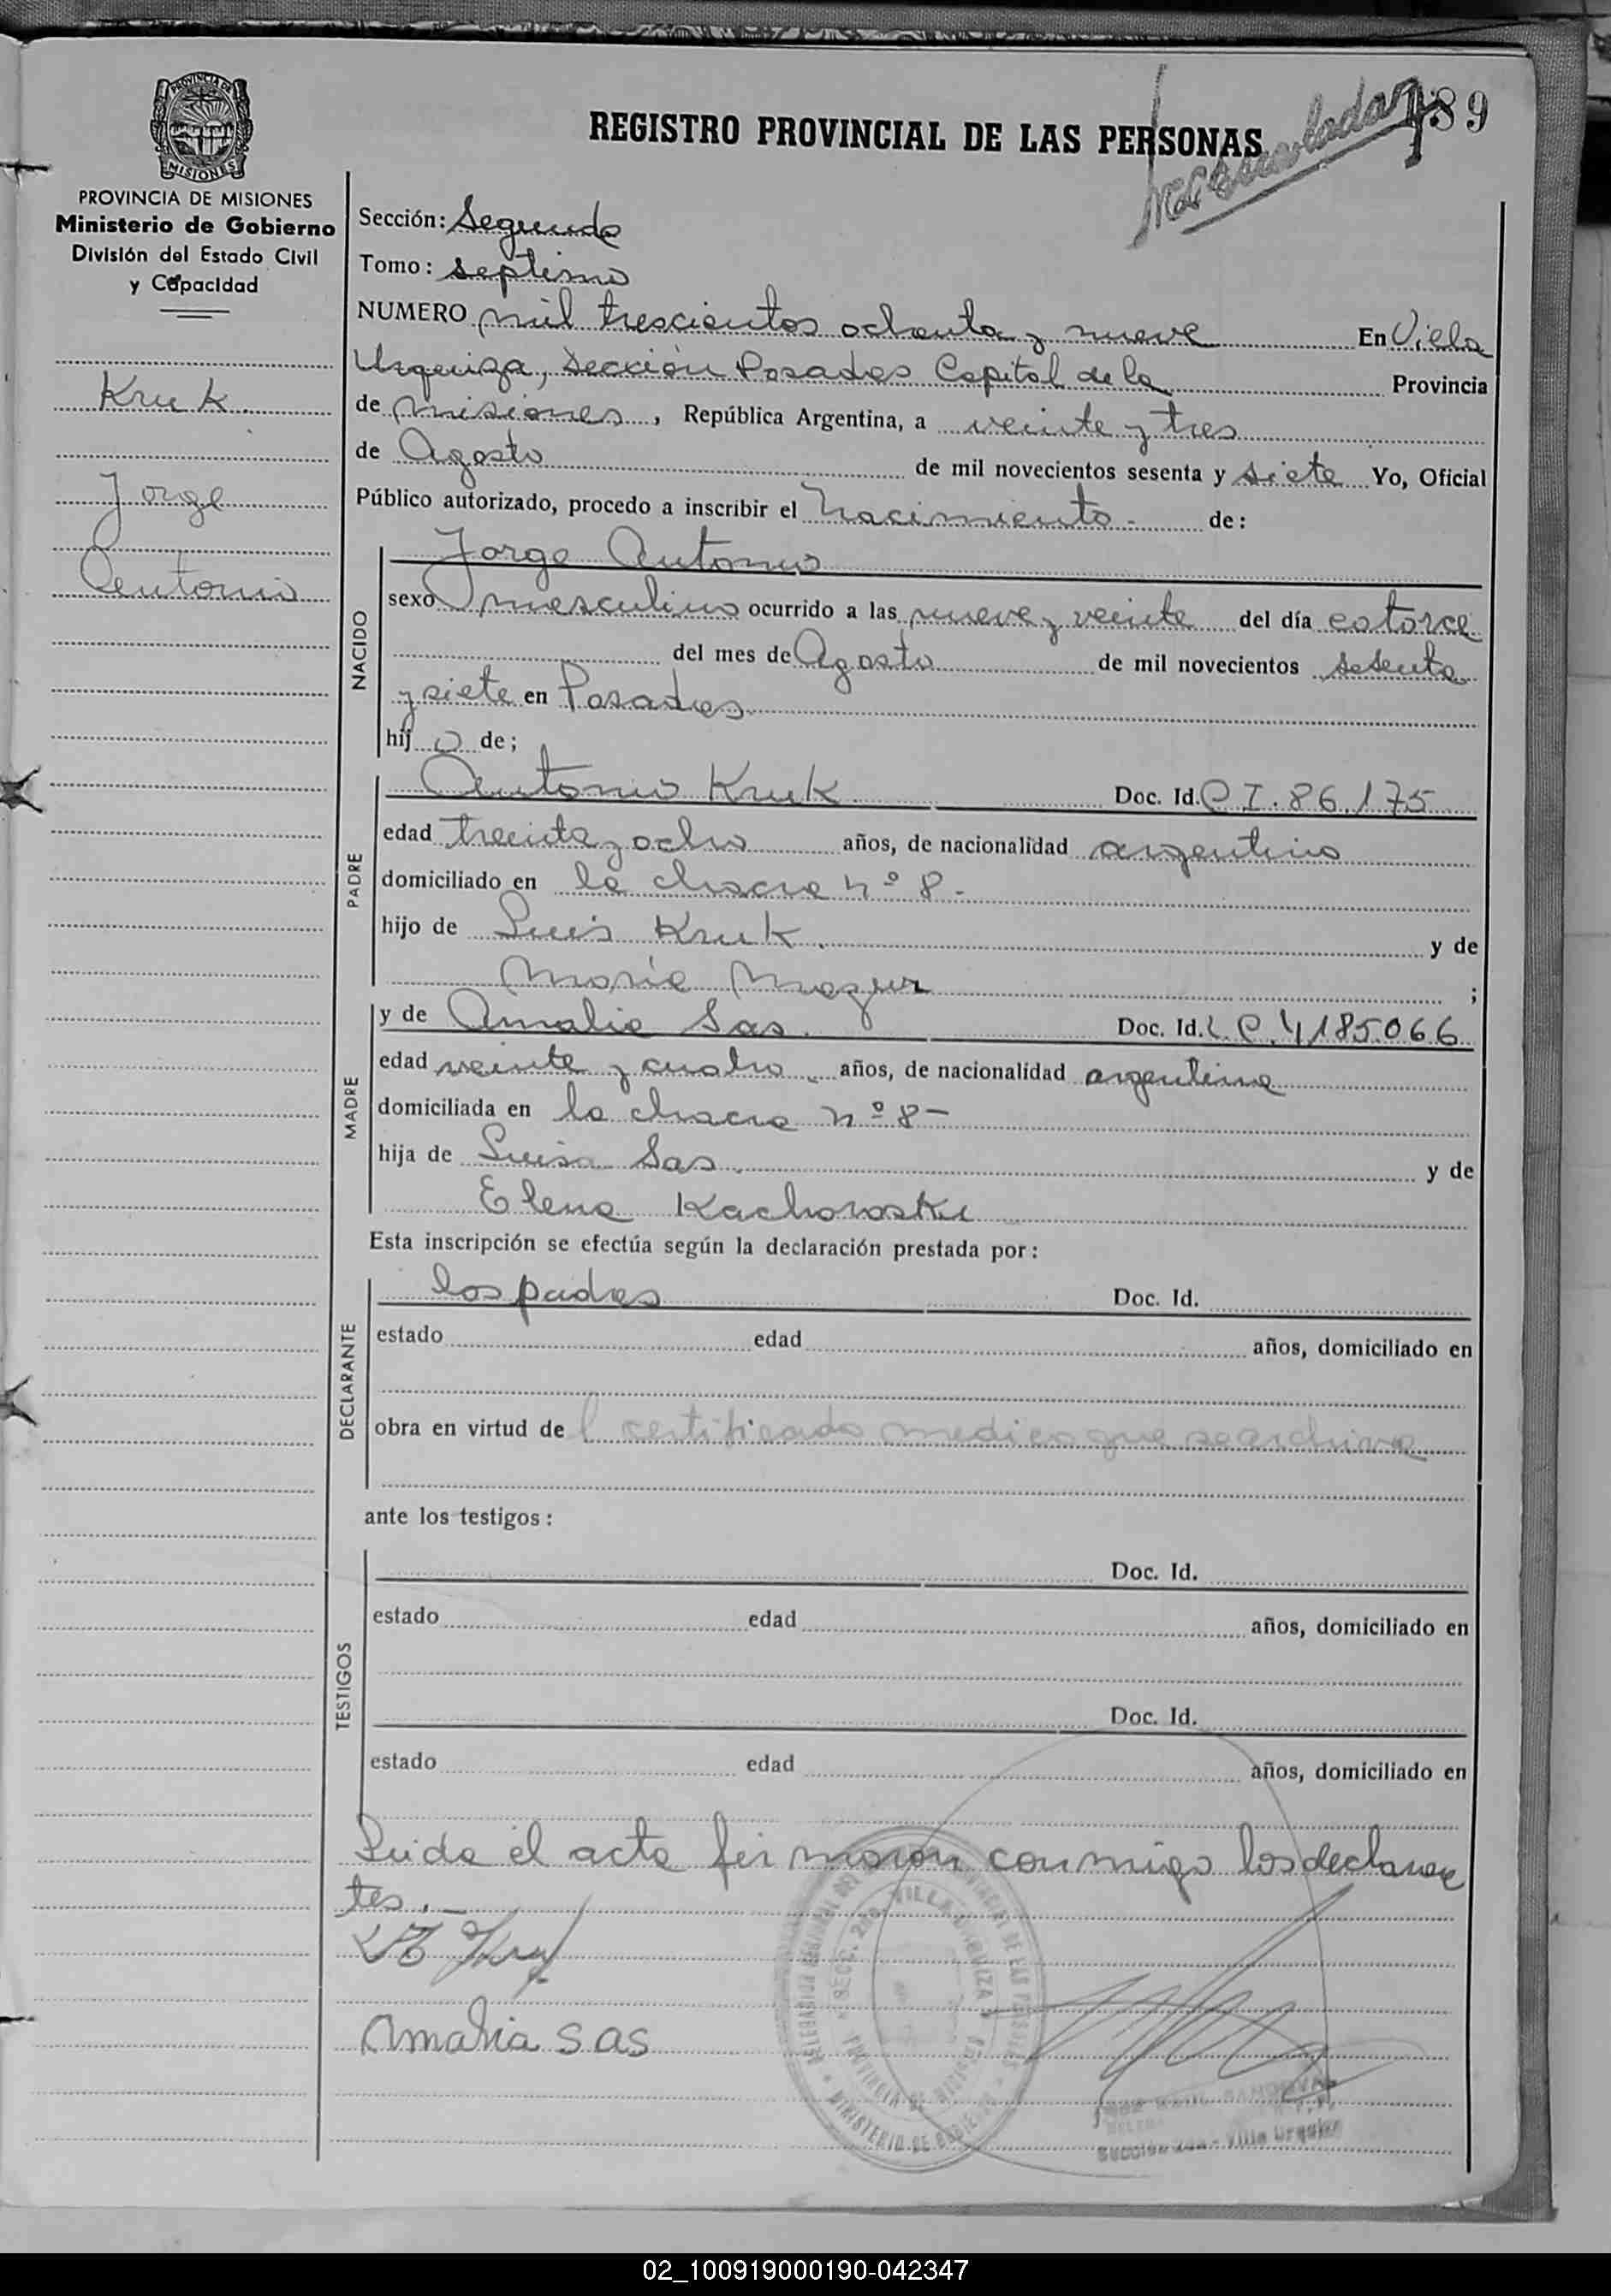 189
REGISTRO PROVINCIAL DE LAS PERSONAS
PROVINCIA DE MISIONES
Ministerio de Gobierno
División del Estado Civil
y Capacidad
Kruk
Jorge
Antonio
Sección: Segunda
Tomo: septimo
NUMERO mil trescientos ochenta y nueve En Villa
Urquiza, Sección Posadas Capital de la Provincia
de misiones, República Argentina, a veinte y tres
de Agosto de mil novecientos sesenta y siete Yo, Oficial
Público autorizado, procedo a inscribir el nacimiento de:
NACIDO
Jorge Antonio
sexo masculino ocurrido a las nueve y veinte del día catorce
del mes de Agosto de mil novecientos sesenta
y siete en Posadas
hijo de;
PADRE
Antonio Kruk Doc. Id. C I. 86.175
edad treinta y ocho años, de nacionalidad argentino
domiciliado en la chacra nº 8-
hijo de Luis Kruk. y de
Maria Mazur ;
MADRE
y de Amalia Sas. Doc. Id. L C. 4185.066
edad veinte y cuatro años, de nacionalidad argentina
domiciliada en la chacra nº 8-
hija de Luisa Sas. y de
Elena Kachoroski
Esta inscripción se efectúa según la declaración prestada por:
DECLARANTE
los padres Doc. Id.
estado edad años, domiciliado en
obra en virtud de l certificado medico que se archiva
ante los testigos:
TESTIGOS
Doc. Id.
estado edad años, domiciliado en
Doc. Id.
estado edad años, domiciliado en
Leida el acta firmaron conmigo los declaran
tes.-
Amalia Sas
MINISTERIO DE GOBIERNO
PROVINCIA DE MISIONES
SECC. 2da VILLA URQUIZA
Sección 2da - Villa Urquiza
02_100919000190-042347